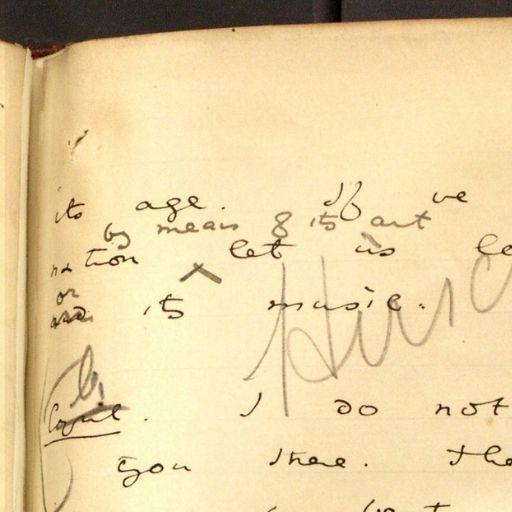 its age. If we
by means of its art
nation let us le
or
and its music.
I do not
you there. The